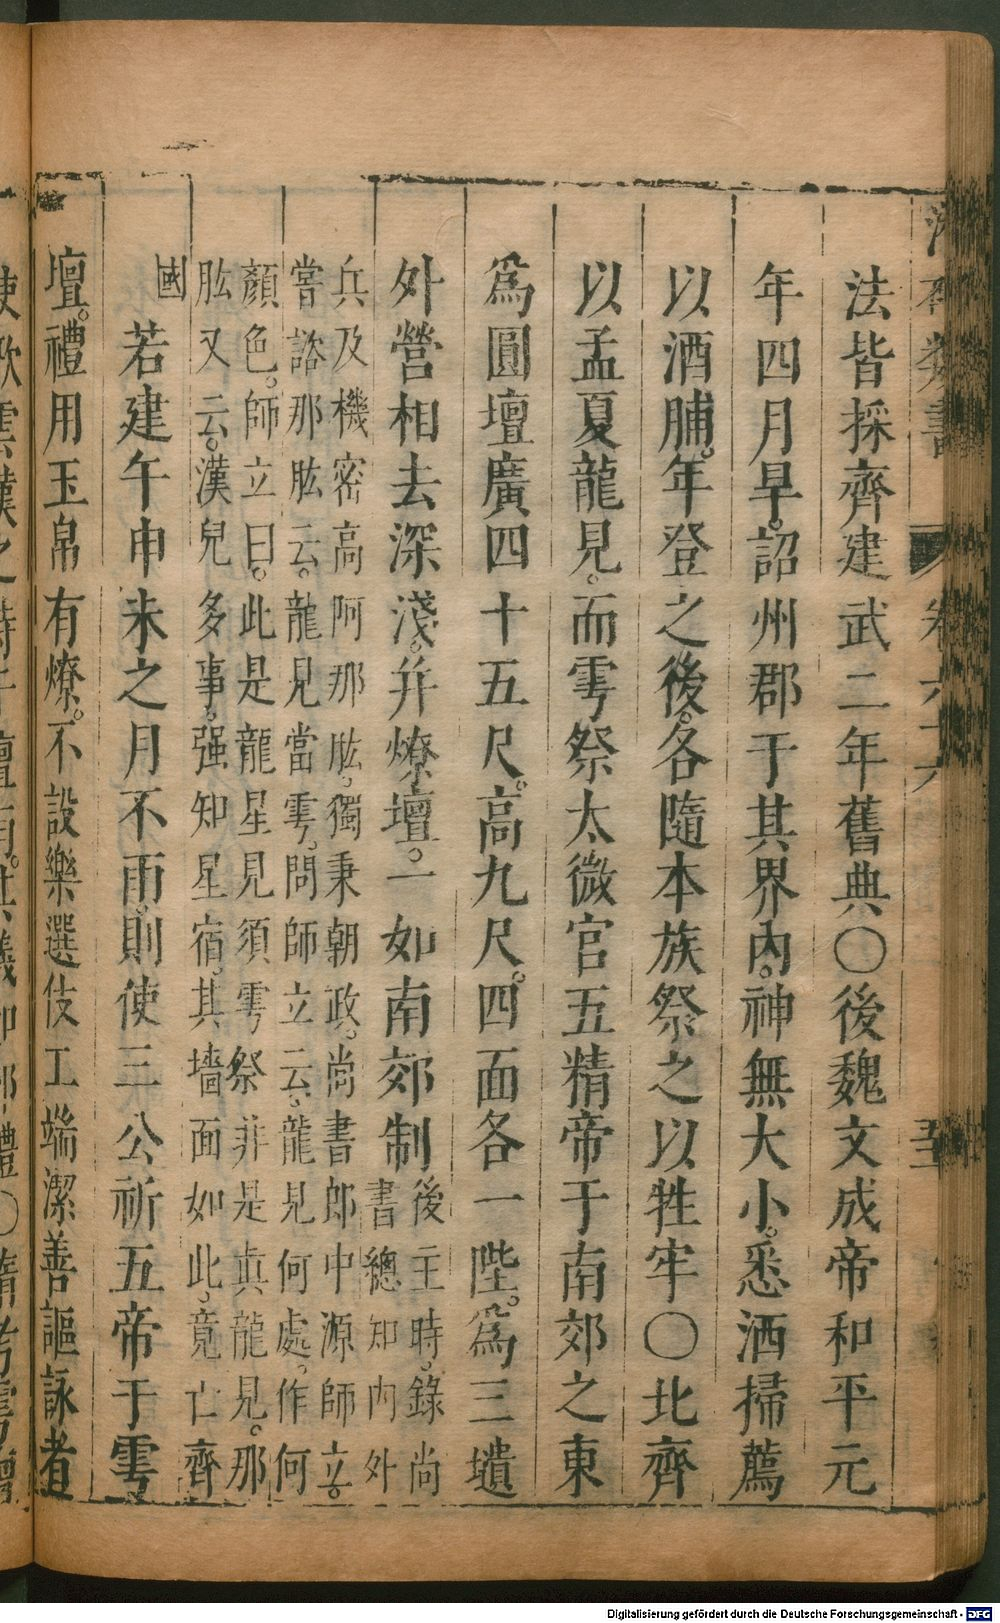 法皆採齊建武二年舊典〇後魏文成帝和平元
年四月旱。詔州郡于其界內。神無大小。悉洒掃薦
以酒脯。年登之後。各隨本族祭之以牲牢〇北齊
以孟夏龍見。而雩祭太微官五精帝于南郊之東
爲圓壇廣四十五尺。高九尺。四面各一陛。爲三壝
外營相去深淺。并燎壇。一如南郊制
後主時。錄尚
書總知內外
兵及機密高阿那肱。獨秉朝政。尚書郎中源師立。
嘗諮那肱云。龍見當雩。問師立云。龍見何處。作何
顏色。師立曰。此是龍星見須雩祭非是真龍見。那
肱又云。漢兒多事。强知星宿。其墻面如此。竟亡齊
國
若建午申未之月不雨。則使三公祈五帝于雩
壇。禮用玉帛有燎。不設樂選伎工端潔善謳詠者
Digitalisierung gefördert durch die Deutsche Forschungsgemeinschaft - DFG